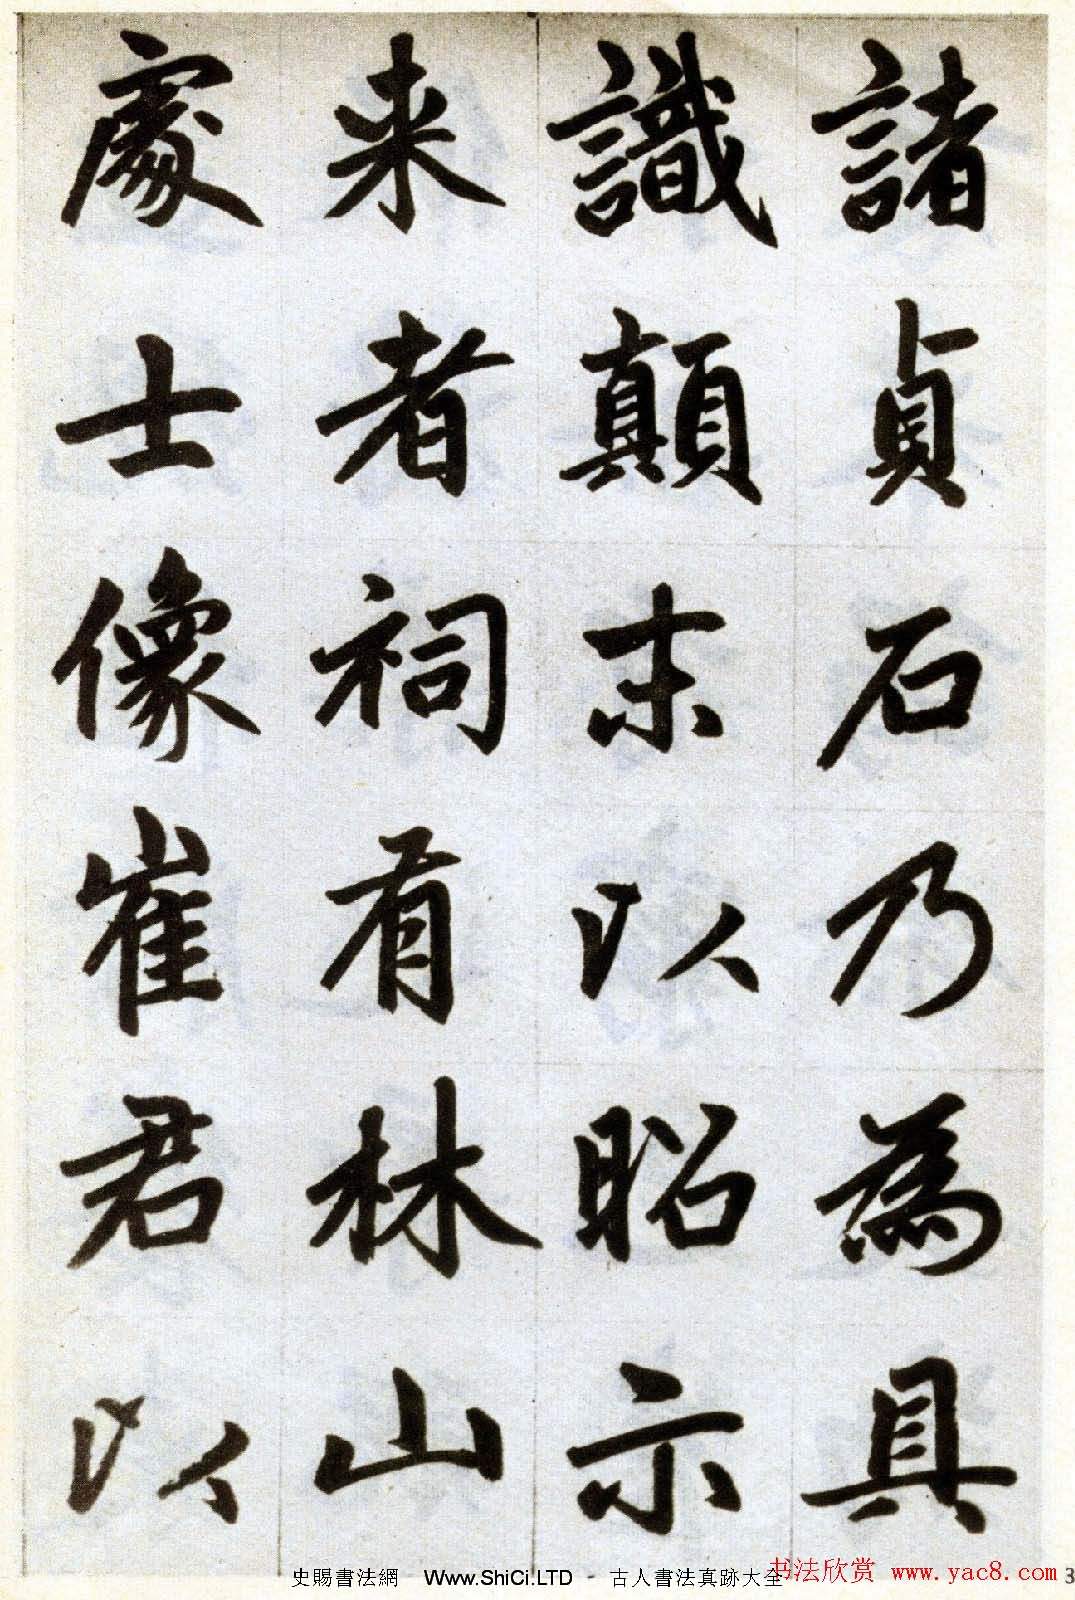 諸貞石乃為具
識顛末以昭示
来者祠有林山
處士像崔君以
史賜書法網 Www.ShiCi.LTD - 古人書法真跡大全
书法欣赏 www.yac8.com
3